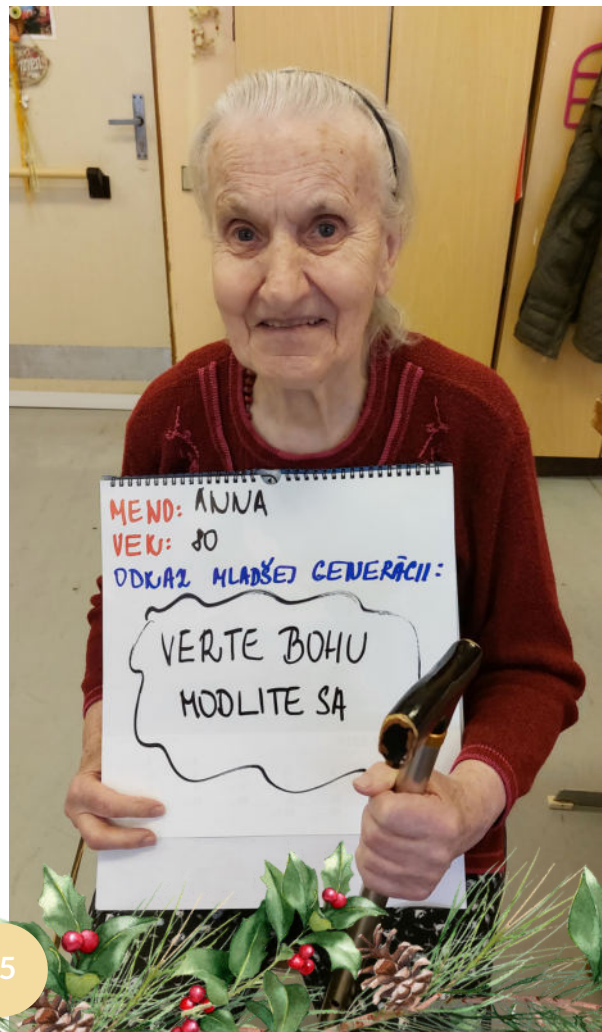 MENO: ANNA
VEK: 80
ODKAZ MLADŠEJ GENERÁCII:
VERTE BOHU
MODLITE SA
5